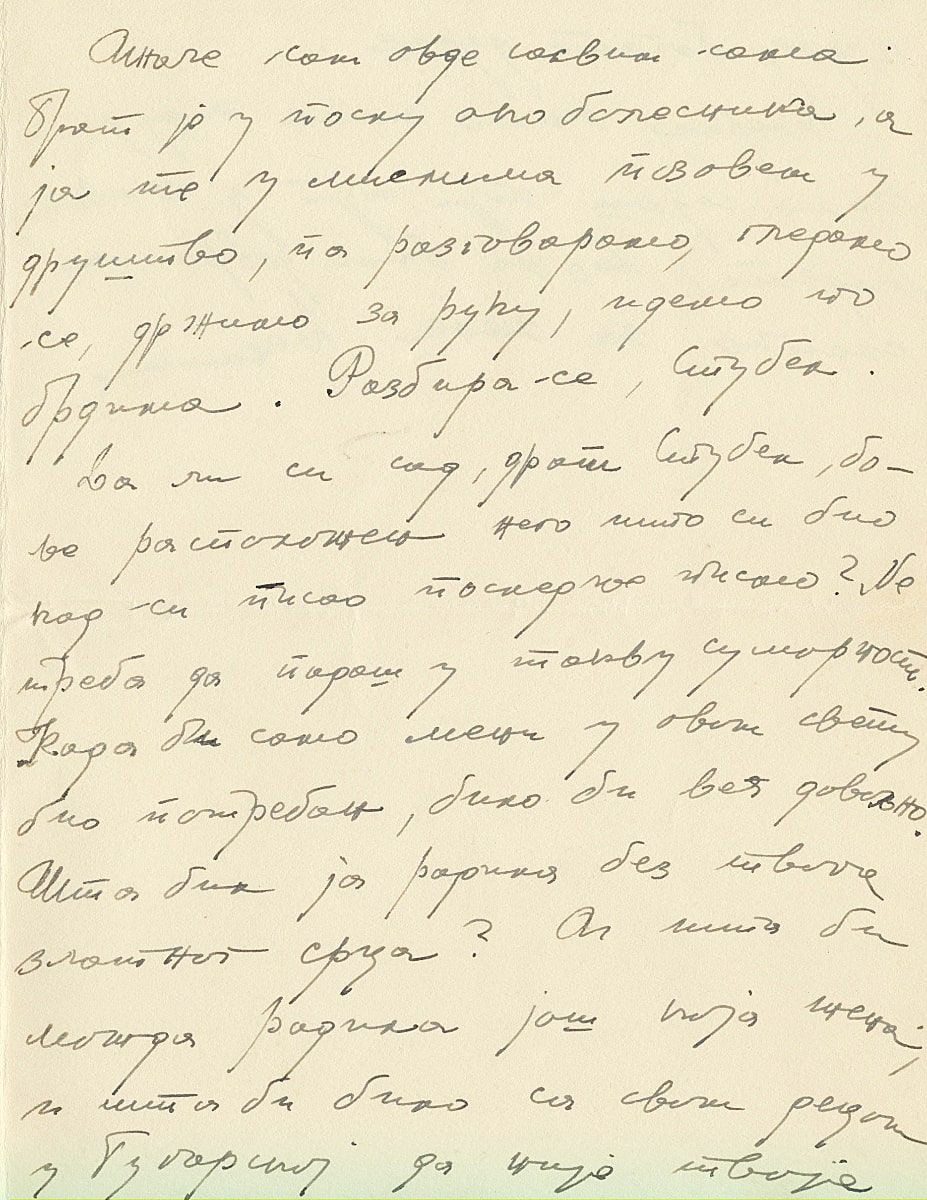 Иначе сам овде сасвим сама.
Брат је у послу око болесника, а
ја те у мислима позовем у
друштво, па разговарамо, гледамо
се, држимо за руку, идемо по
брдима. Разбира се, Стубек.
Да ли си сад, драги Стубек, бо-
ље расположен него што си био
кад си писао последње писмо? Не
треба да падаш у такву суморност.
Када би само мени у овом свету
био потребан, било би већ довољно.
Шта бих ја радила без твога
златног срца? А шта би
можда радила још која жена,
и шта би било са свом децом
у Бугарској да није твоје